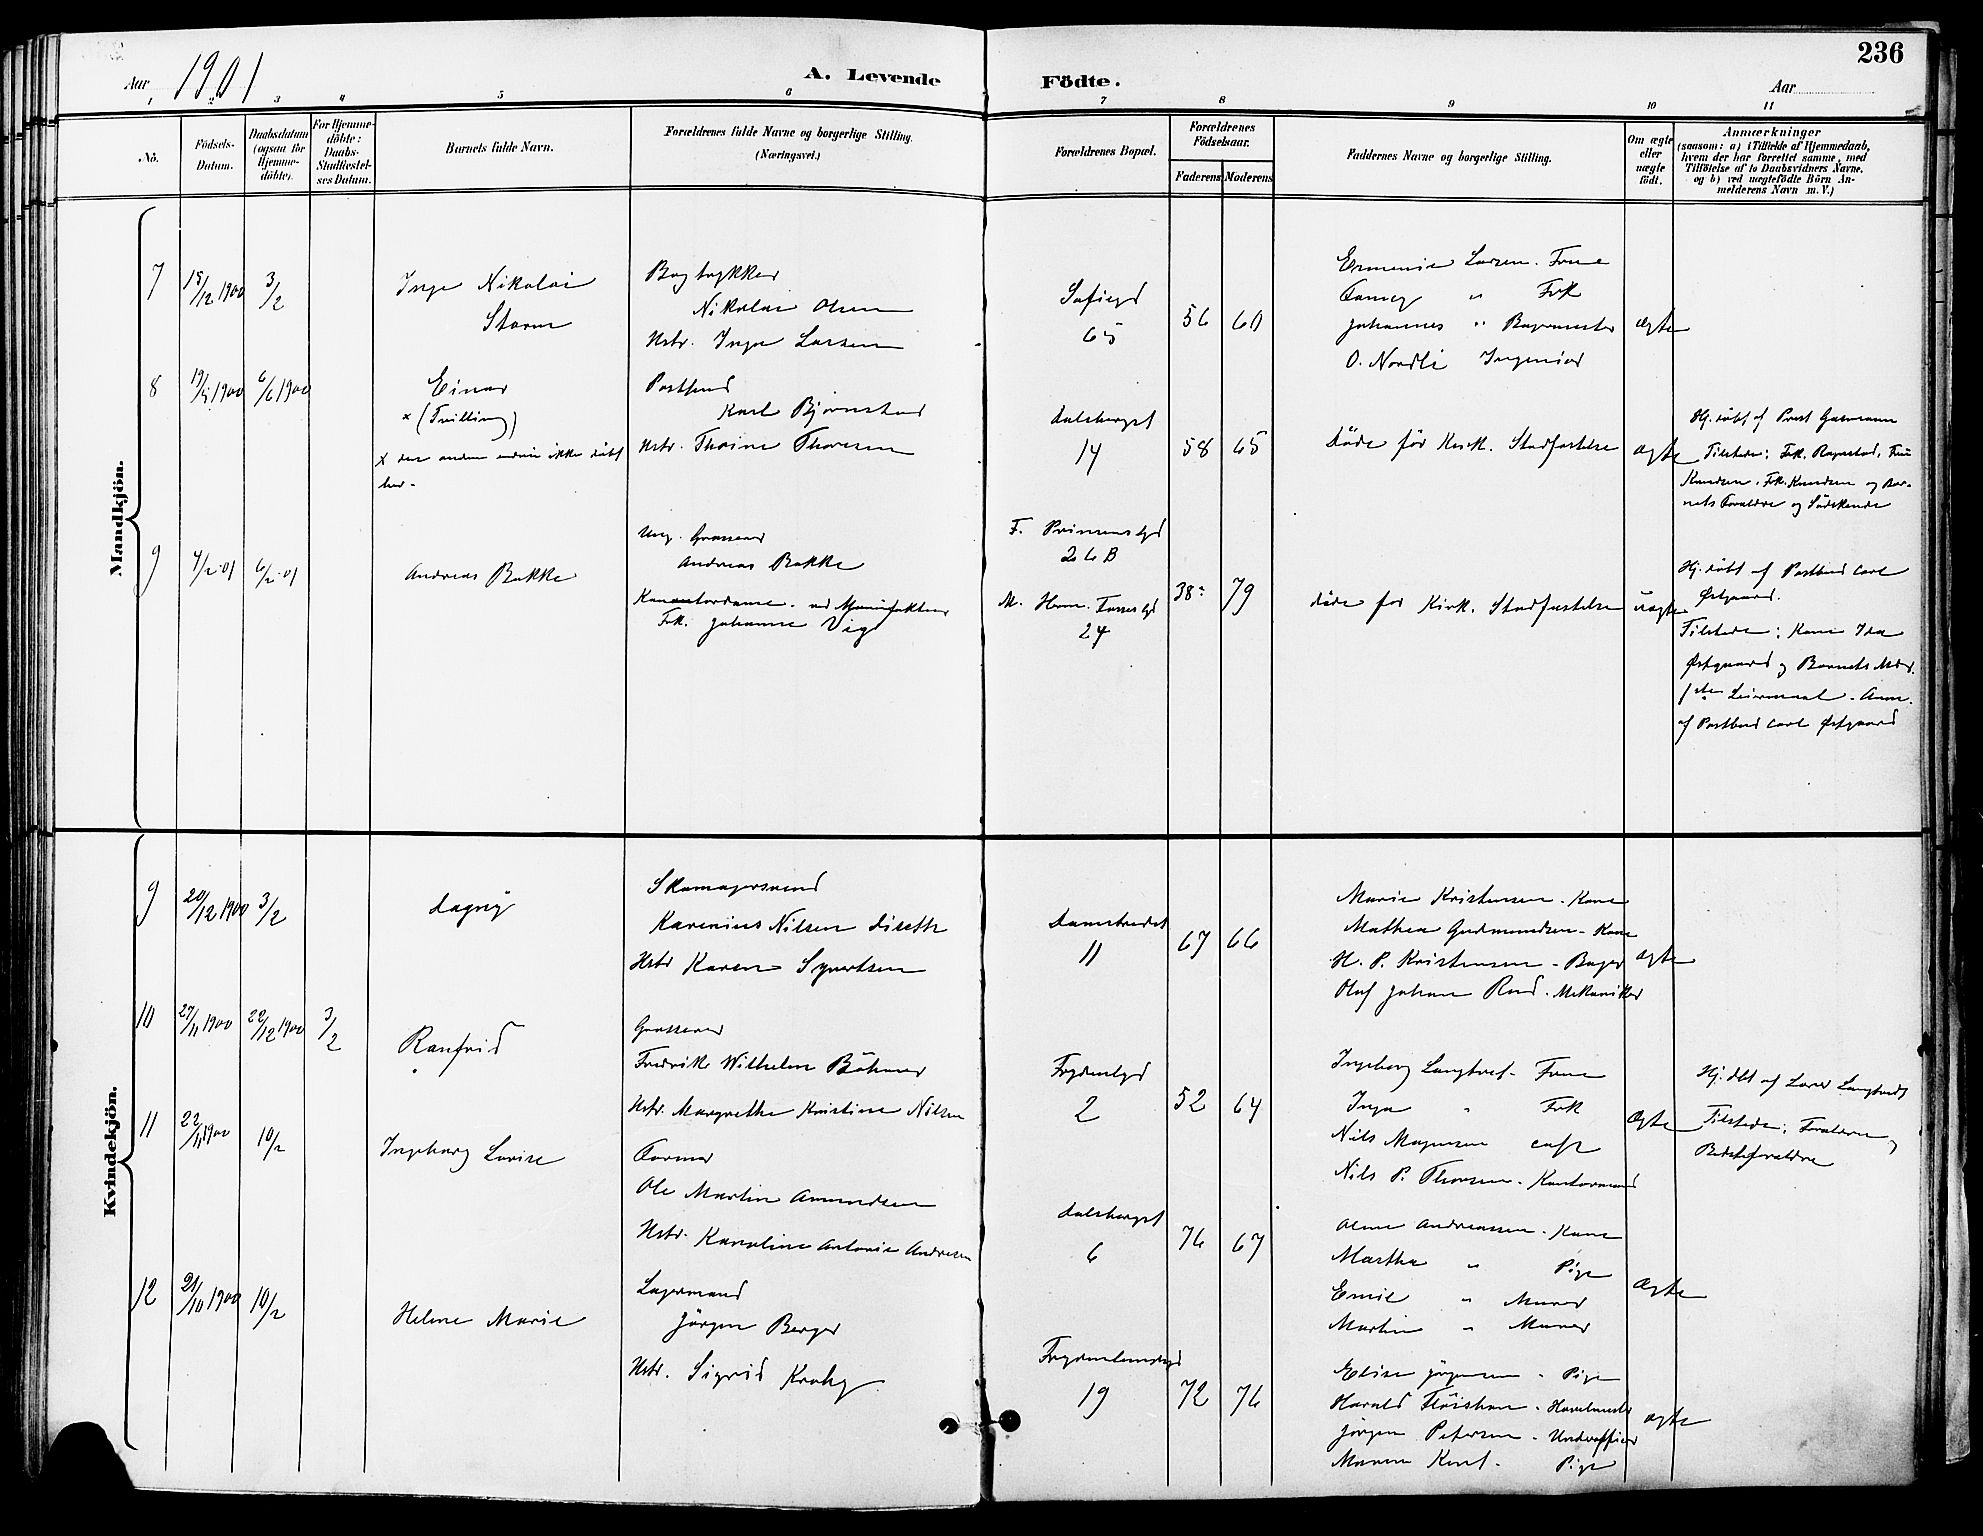 236
Aar 1901
A. Levende
Födte.
Aar
1 2 3 4 5 6 7 8 9 10 11
No.
Födsels-
Datum.
Daabsdatum
(ogsaa for
Hjemme-
döbte).
For Hjemme-
döbte:
Daabs-
Stadfæstel-
ses Datum.
Barnets fulde Navn.
Forældrenes fulde Navne og borgerlige Stilling.
(Næringsvei.)
Forældrenes Bopæl.
Forældrenes
Födselsaar.
Faderens
Moderens
Faddernes Navne og borgerlige Stilling.
Om ægte
eller
uægte
födt.
Anmærkninger
(saasom: a) i Tilfælde af Hjemmedaab,
hvem der har forrettet samme, med
Tilföielse af to Daabsvidners Navne,
og b) ved uægtefödte Börn An-
melderens Navn m. V.)
Mandkjön.
7
12 1900
3/2
Inge Nikolai
Storm
Bogtrykker
Nikolai Olsen
Hstr. Inga Larsen
Sofiegd
65
56
60
Larsen. Frue
Fanny " Frk
Johannes "
O. Nordli Ingeniør
Ægte
8
1900
6/6 1900
Einar
x (Tvilling)
x den anden endnu ikke døbt
her.
Postbud
Karl Bjørnstad
Hstr. Thoresen
Dalsberget
14
58
65
Døde før Kirk. Stadfæstelse
Ægte
Hj. døbt af Prest
Tilstede: Frk. Fru
Knudsen, Frk. Knudsen og Bar-
nets Forældre og Södskende
9
4/2-01
6/2-01
Andreas Bakke
Ung. Grosserer
Andreas Bakke
Kontordame. ved
Frk. Johanne Vig
F. Prinsens gd
26 B
M. Herm. Fossgd
24
38
79
Døde før Kirk. Stadfæstelse
Uægte
Hj. døbt af Postbud Carl
Østgaard.
Tilstede: Kone Ida
Østgaard og Barnets Mor.
1ste Leiermaal. Anm.
af Postbud Carl Østgaard
Kvindekjön.
9
20/12 1900
3/2
Dagny
Skomagersvend
Karenius Nilsen Diseth
Hstr Karen Syvertsen
Damstredet
11
67
66
Marie Kristensen. Kone
Mathea Gudmundsen. Kone
H. P. Kristensen - Bager
Olaf Johan Rud. Mekaniker
Ægte
10
27/11 1900
22/12 1900
3/2
Ranfrid
Grosserer
Fredrik Wilhelm Böhmer
Hstr. Margrethe Kristine Nilsen
Frydenlgd
2
52
64
Ingeborg - Frue
Inga " Frk
Nils Magnusen
Nils P. Thorsen. Kontormand
Ægte
Hj. dbt af
Tilstede: Forældrene og
Bedsteforældre
11
22/11 1900
10/2
Ingeborg Lovise
Former
Ole Martin Amundsen
Hstr. Karoline Antonie Andresen
Dalsberget
6
76
67
Andreassen. Kone
Martha " Pige
Emil " Murer
Martin " Murer
Ægte
12
21/10 1900
10/2
Helene Marie
Lagermand
Jörgen Berger
Hstr. Sigrid Krohg
Frydenlundsgd
19
72
76
Elise Jörgensen. Pige
Harald
Jörgen Petersen. Underofficer
Maren Pige
Ægte